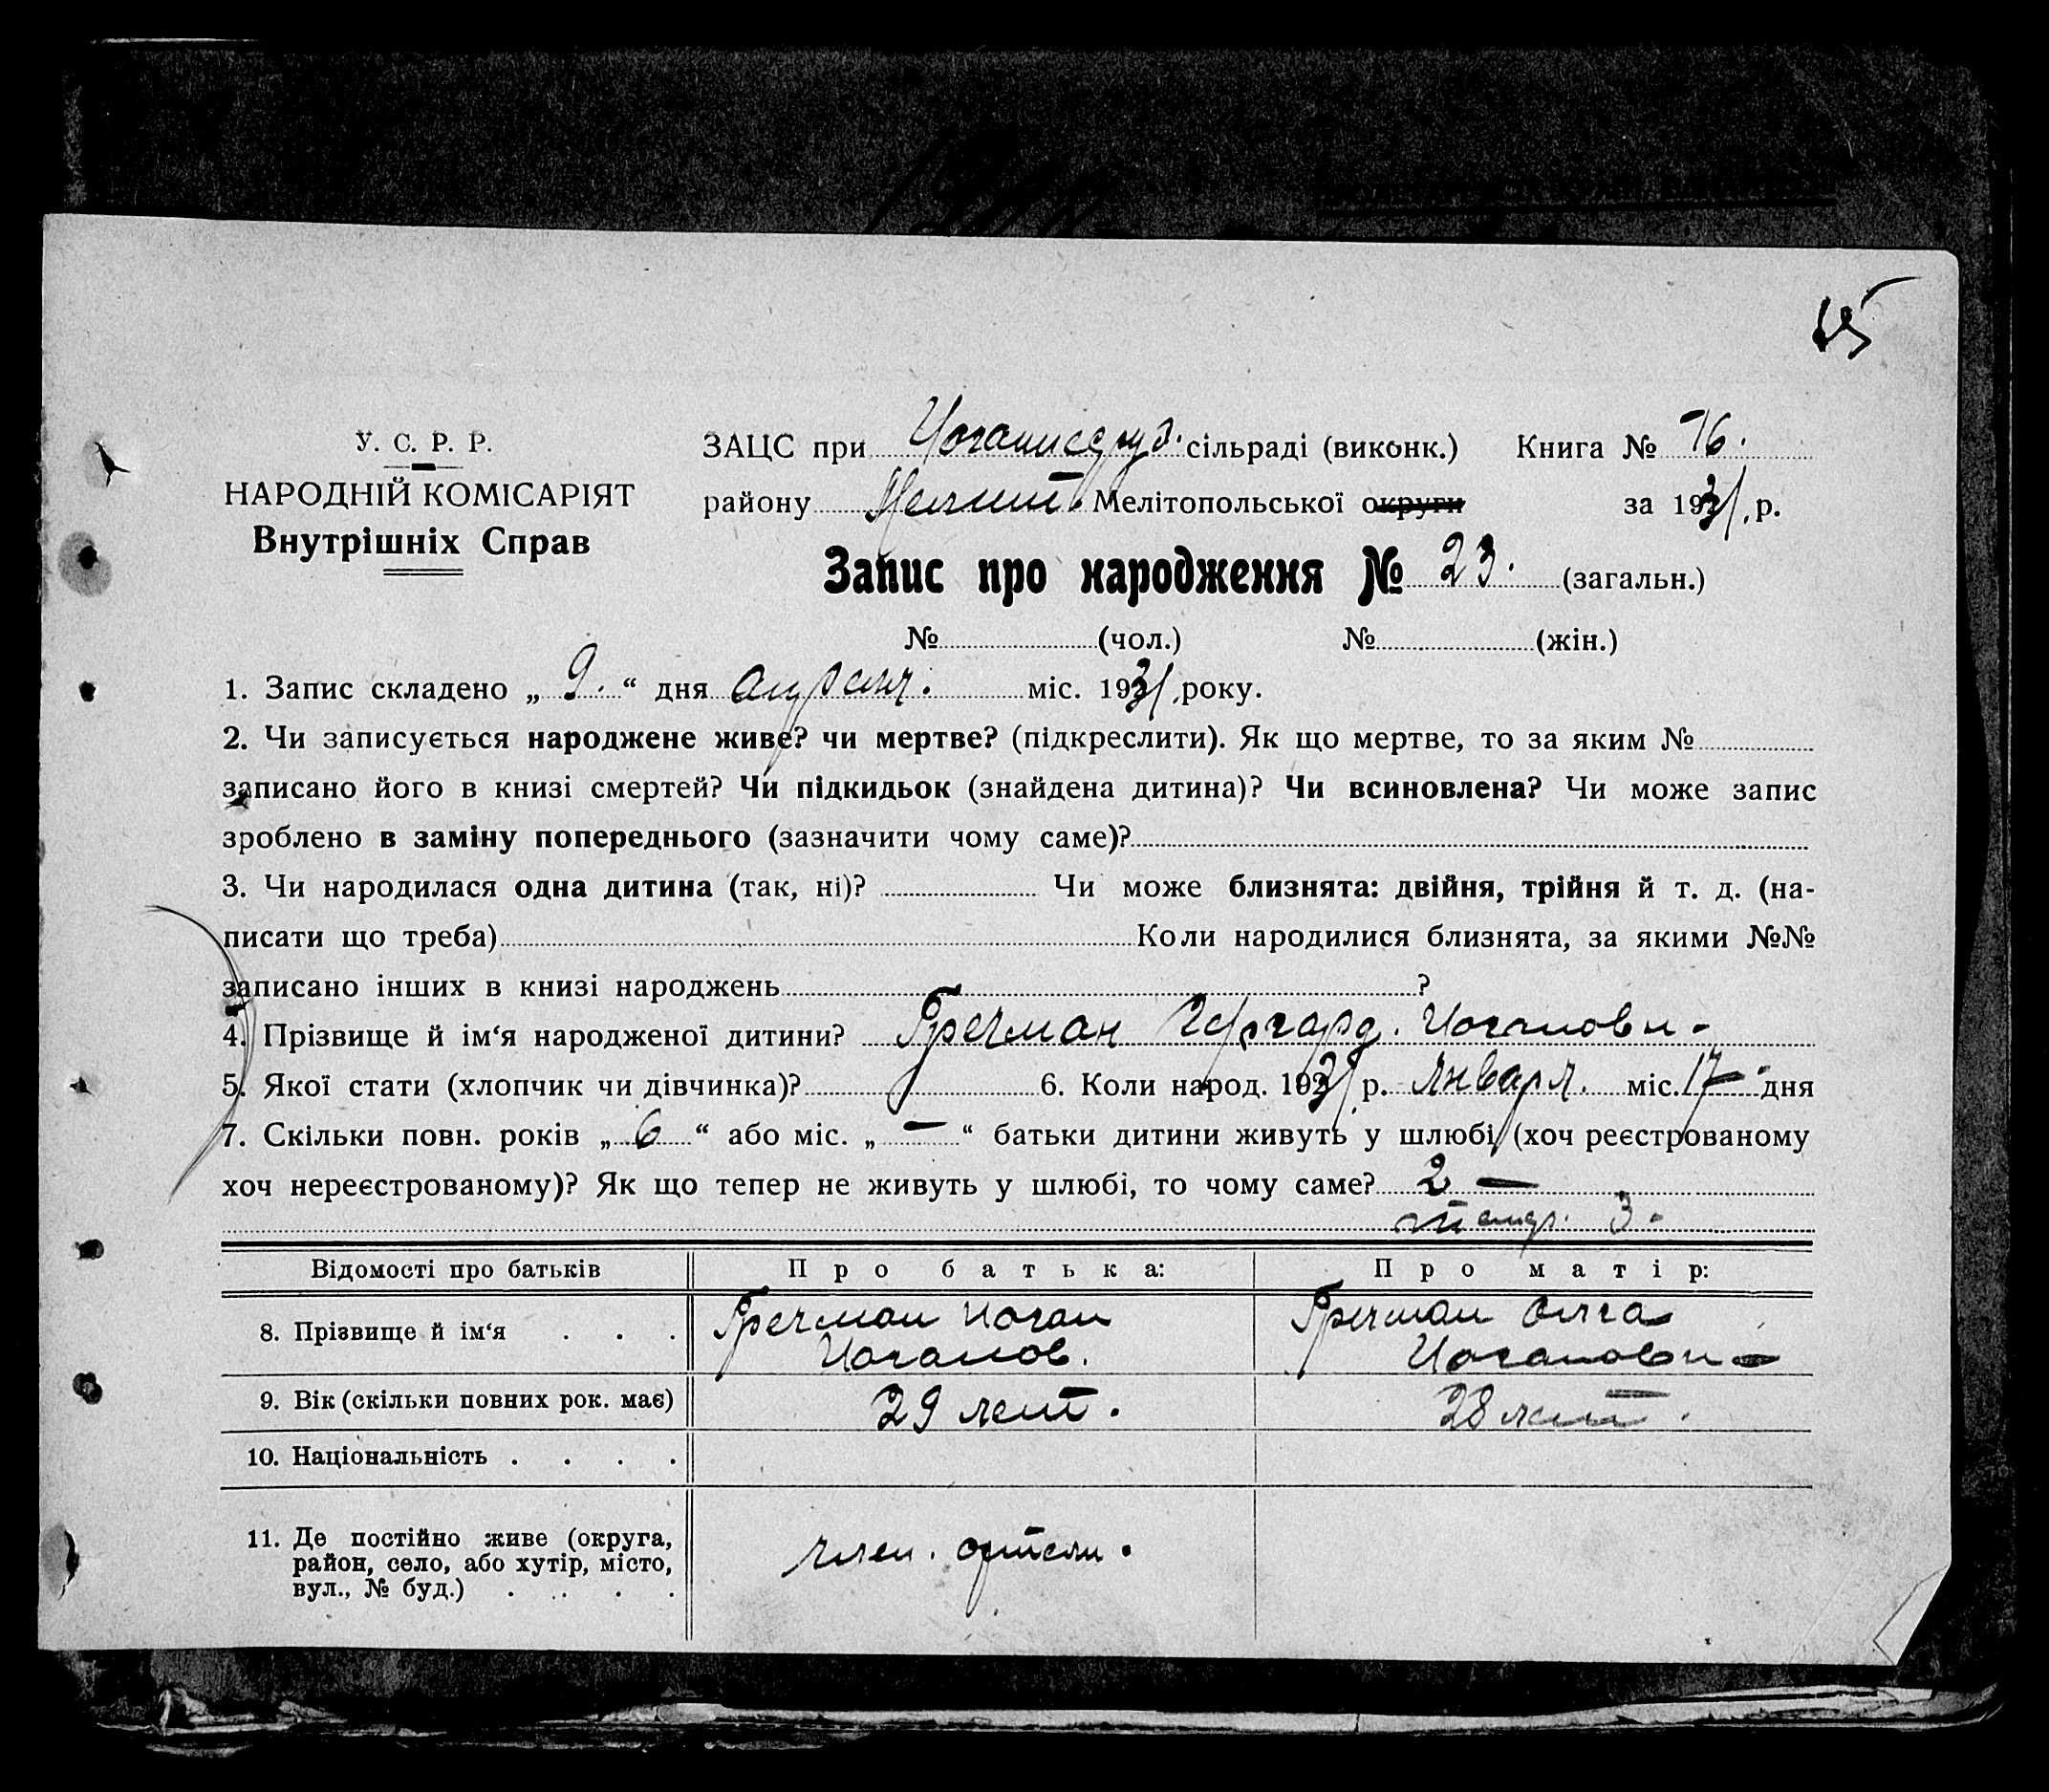 У. С. Р. Р.
НАРОДНІЙ КОМІСАРІЯТ
Внутрішніх Справ
ЗАЦС при Иоганисдруд. сільраді (виконк.) Книга № 76.
району Меліт. Мелітопольської округи за 1931 р.
Запис про народження № 23. (загальн.)
№ (чол.) № (жін.)
1. Запис складено „ 9. “ дня апреля. міс. 1931 року.
2. Чи записується народжене живе? чи мертве? (підкреслити). Як що мертве, то за яким №
записано його в книзі смертей? Чи підкидьок (знайдена дитина)? Чи всиновлена? Чи може запис
зроблено в заміну попереднього (зазначити чому саме)?
3. Чи народилася одна дитина (так, ні)? Чи може близнята: двійня, трійня й т. д. (на-
писати що треба) Коли народилися близнята, за якими №№
записано інших в книзі народжень ?
4. Прізвище й ім‘я народженої дитини? Гречман Гергард. Иоганови-
5. Якої стати (хлопчик чи дівчинка)? 6. Коли народ. 1931 р. января. міс. 17 дня
7. Скільки повн. років „ 6 “ або міс. „ — “ батьки дитини живуть у шлюбі (хоч реєстрованому
хоч нереєстрованому)? Як що тепер не живуть у шлюбі, то чому саме? 2 —
3.
Відомості про батьків Про батька: Про матір:
8. Прізвище й ім‘я . . . Гречман Иоган Гречман Олга
Иоганов. Иоганови-
9. Вік (скільки повних рок. має) 29 лет. 28 лет.
10. Національність . . . .
11. Де постійно живе (округа,
район, село, або хутір, місто,
вул., № буд.) . . . .
член. артели.